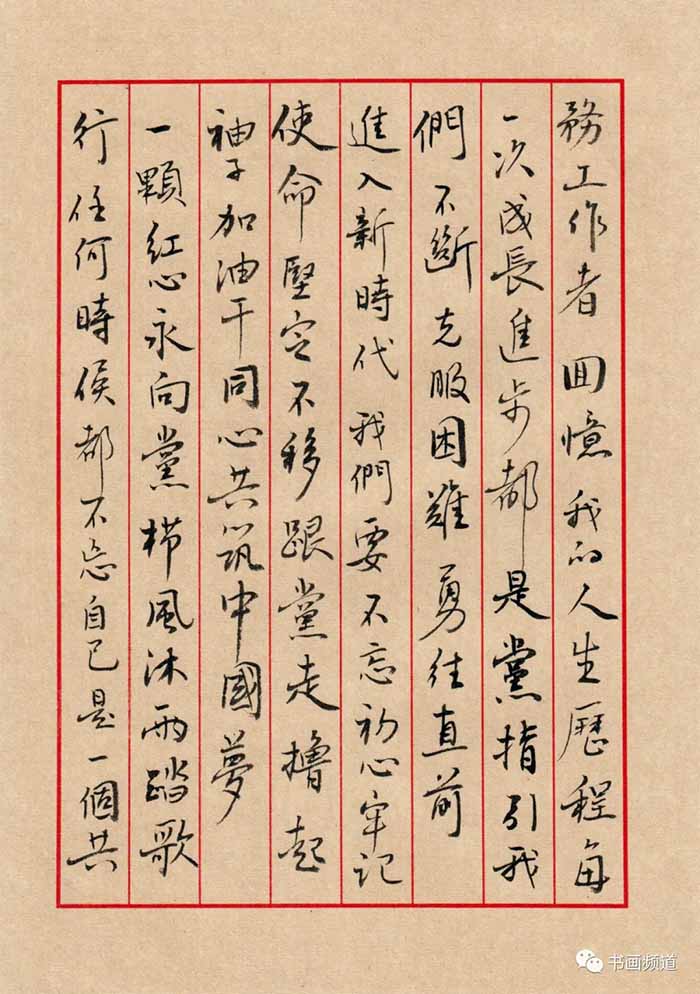 務工作者回憶我的人生歷程每
一次成長進步都是黨指引我
們不斷克服困難勇往直前
進入新時代我們要不忘初心牢记
使命堅定不移跟黨走擼起
袖子加油干同心共筑中國夢
一顆紅心永向黨栉風沐雨踏歌
行任何時候都不忘自己是一個共
书画频道